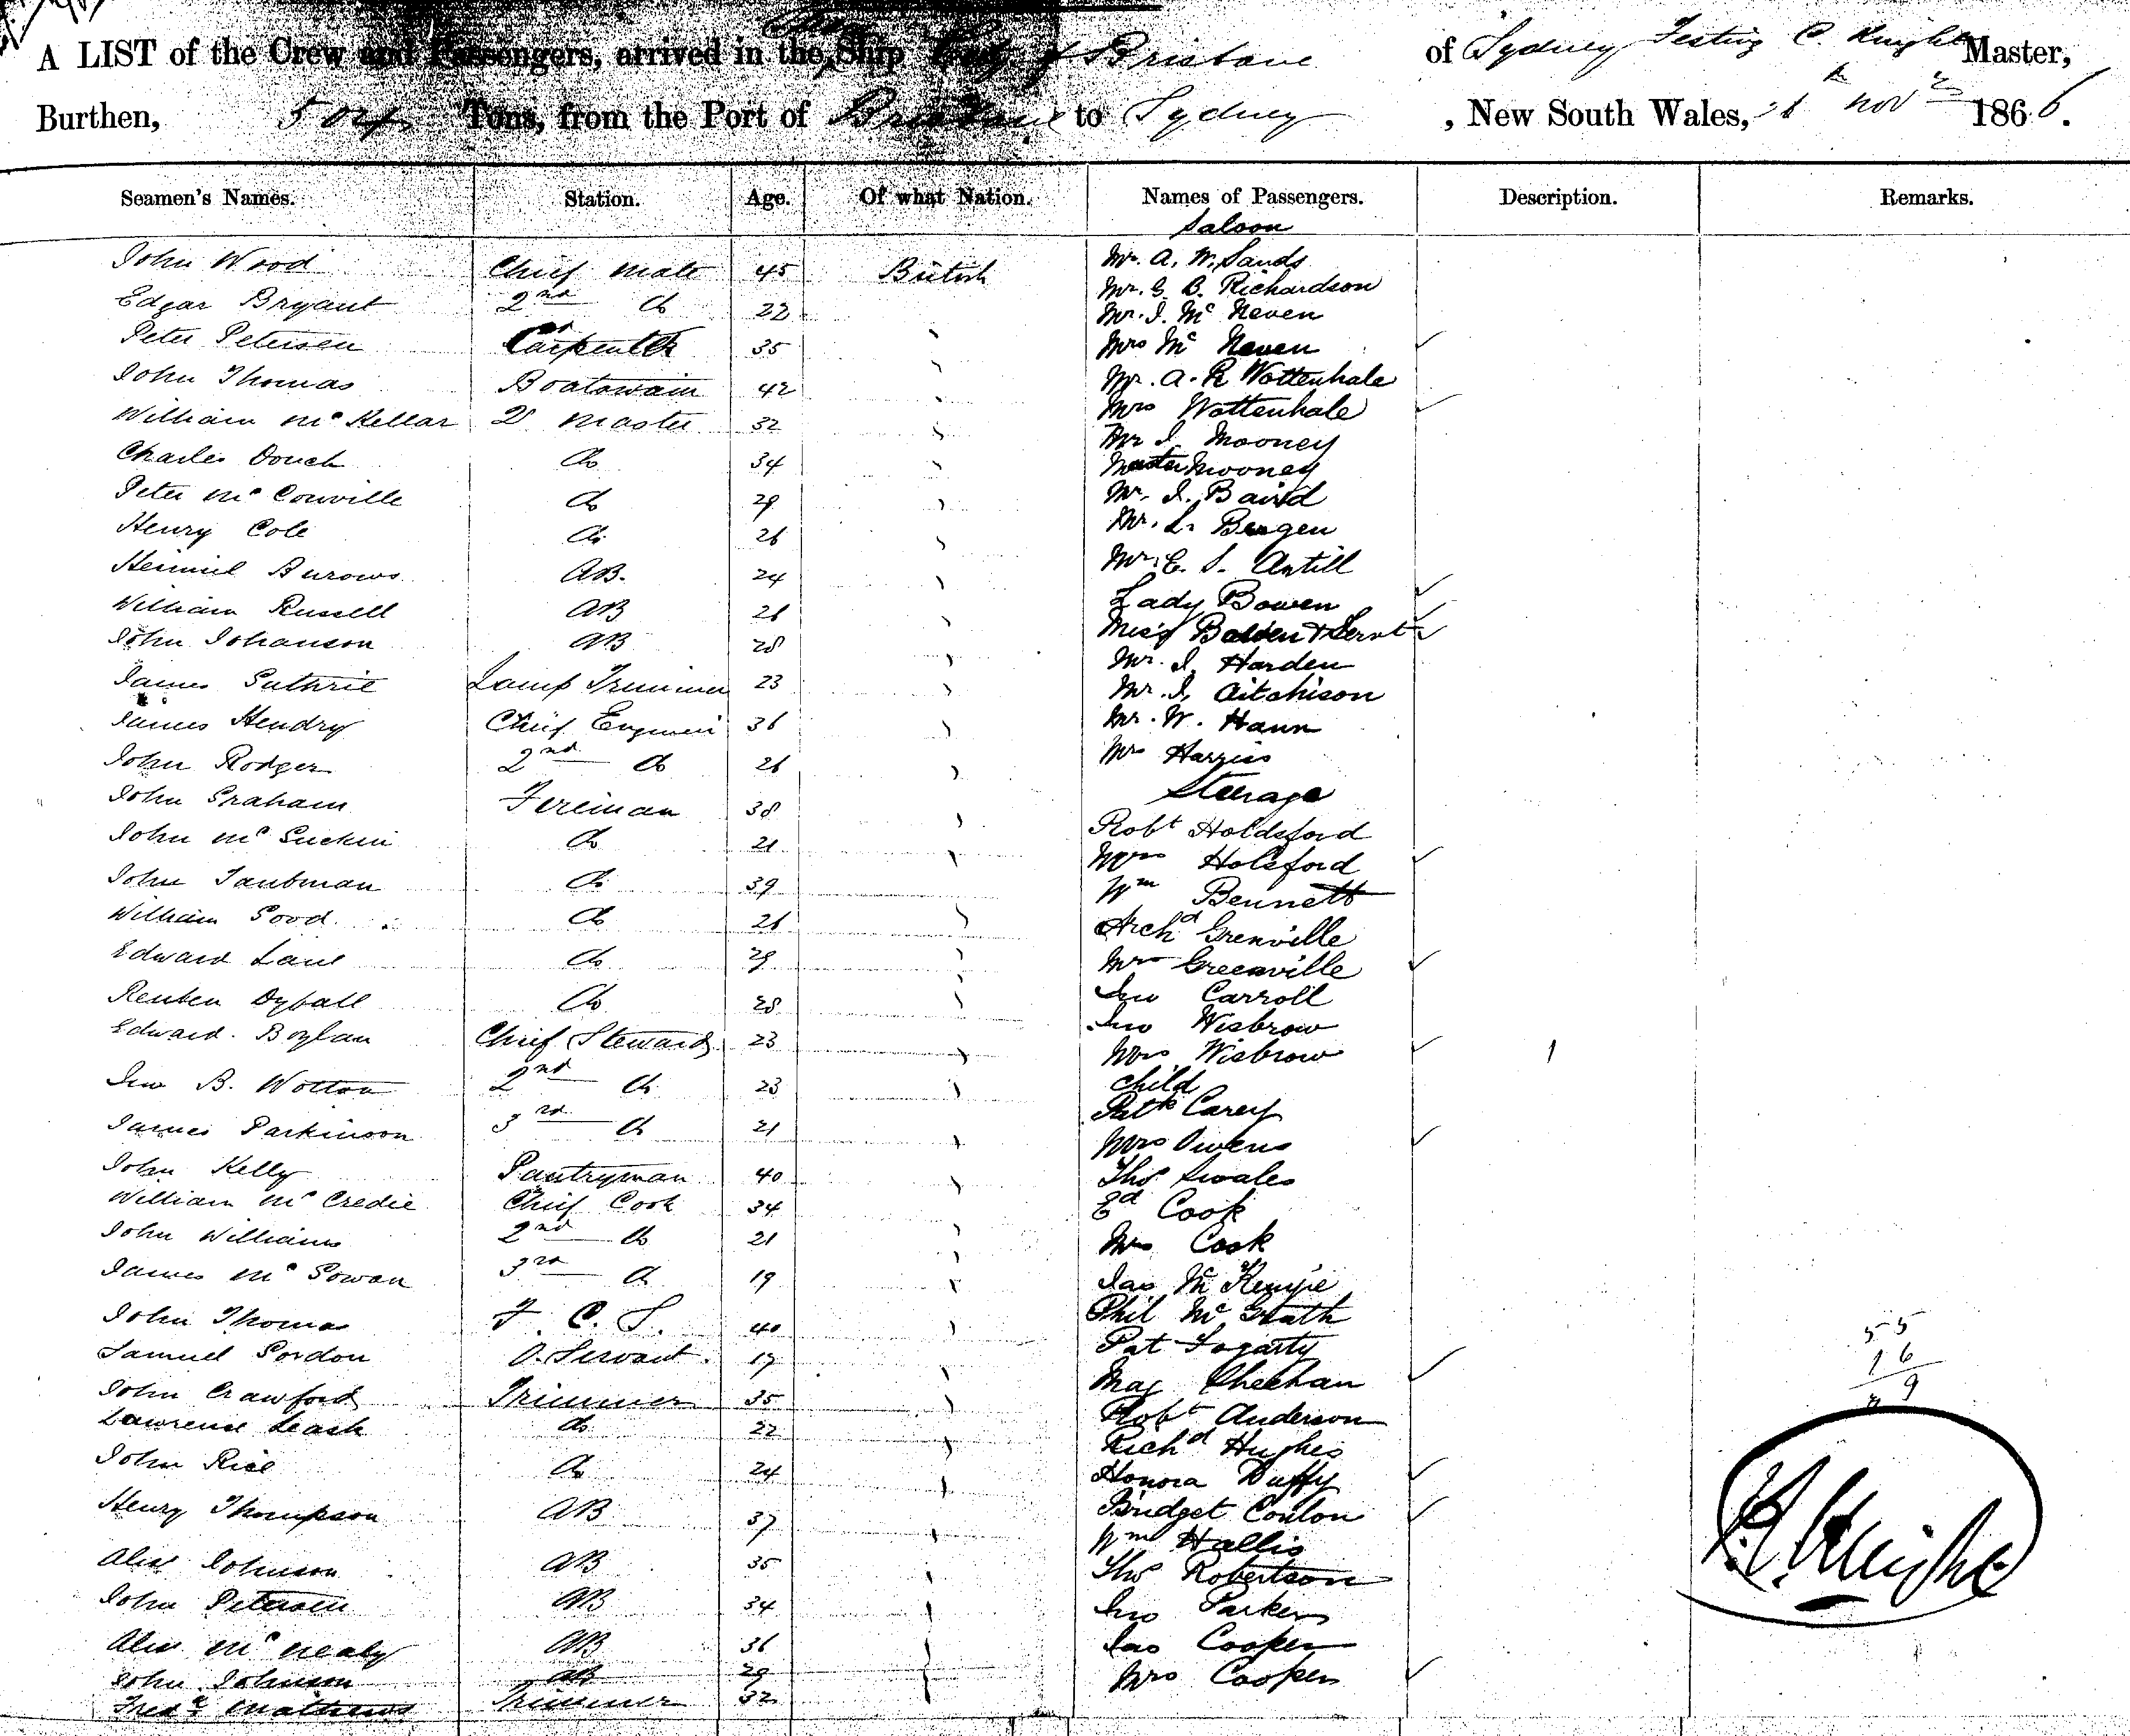 A LIST of the Crew and Passengers, arrived in the Ship City of Brisbane of Sydney C. Knight Master,
Burthen, 504 Tons, from the Port of Brisbane to Sydney, New South Wales, Novr 1866.
Seamen's Names. Station. Age. Of what Nation. Names of Passengers. Description. Remarks.
Saloon
John Wood Chief Mate 45 British Mr. A. W. Sands
Edgar Bryant 2nd Do 22 Mr. G. B. Richardson
Mr. J. Mc Neven
Peter Petersen Carpenter 35 Mrs Mc Neven
John Thomas Boatswain 42 Mr. A. R Wottenhale
William Mc Kellar Q Master 32 Mrs Wottenhale
Mr J. Mooney
Charles Douch Do 34 Master Mooney
Peter Mc Conville Do 29 Mr. J. Baird
Henry Cole Do 26 Mr. L. Bergen
Burows AB. 24 Mr. E. S. Antill
William Russell AB 26 Lady Bowen
John Johanson AB 28 Miss & Servt
Mr. J. Harden
James Guthrie Lamp Trimmer 23 Mr. J. Aitchison
James Hendry Chief Engineer 36 Mr. W. Hann
John Rodger 2nd Do 26 Mr Harriss
Steerage
John Graham Fireman 38
Robt Holdsford
John Mc Guckin Do 21 Mrs Holsford
John Taubman Do 39 Wm Bennett
William Good Do 26 Archd Grenville
Edward Lane Do 29 Mrs Greenville
Reuben Dyball Do 28 Jno Carroll
Jno Wisbrow
Edward Boylan Chief Steward 23 Mrs Wisbrow
Jno B. Wotton 2nd Do 23 Child
Patk Carey
James Parkinson 3rd Do 21 Mrs Owens
John Kelly Pantryman 40 Thos Swales
William Mc Credie Chief Cook 34 Ed Cook
John Williams 2nd Do 21 Mrs Cook
James Mc Gowan 3rd Do 19 Jas Mc
John Thomas F. C. S. 40 Phil Mc Grath
Samuel Gordon O. Servant. 17 Pat Fogarty
John Crawford Trimmer 35 Mag Sheehan
Lawrence Leask do 22 Robt Anderson
Richd Hughes
John Rice Do 24 Honora Duffy
Henry Thompson AB 37 Bridget Conlon
Wm Hallis
Alex Johnson AB 35 Thos Robertson
John Petersen AB 34 Jno Parker
Alex Mc Nealy AB 36 Jas Cooper
John Johnson AB 29 Mrs Cooper
Fredk Mathews Trimmer 32
55
16
Knight